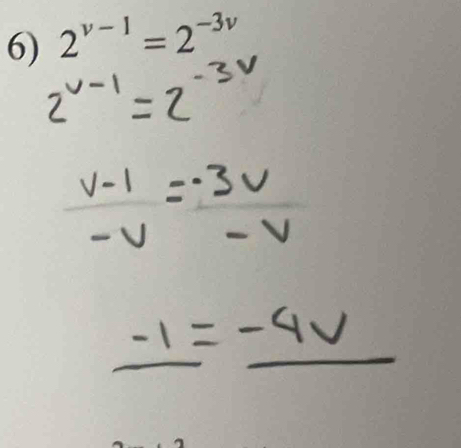 6) 2^{v-1} = 2^{-3v}
2^{v-1} = 2^{-3v}
v-1 = -3v
-v -v
-1 = -4v